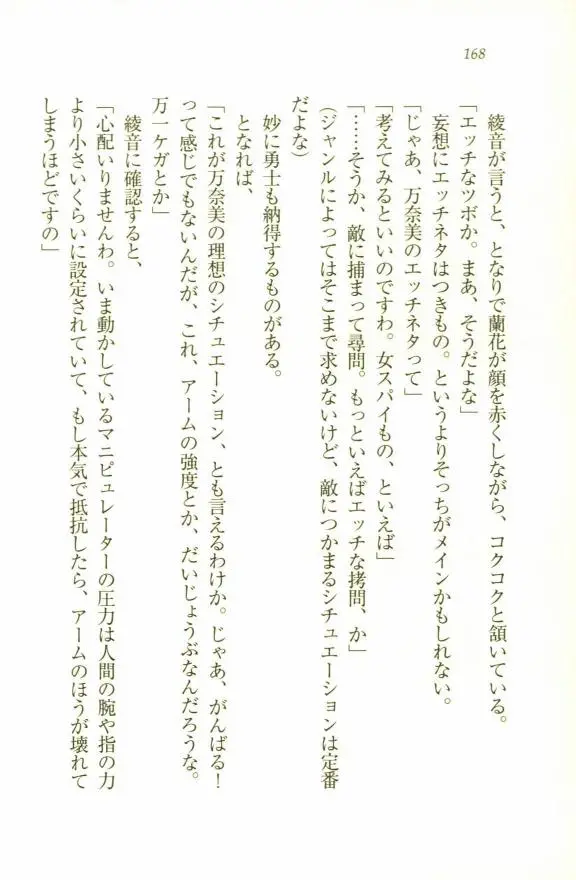 168
綾音が言うと、となりで蘭花が顔を赤くしながら、コクコクと頷いている。
「エッチなツボか。まあ、そうだよな」
妄想にエッチネタはつきもの。というよりそっちがメインかもしれない。
「じゃあ、万奈美のエッチネタって」
「考えてみるといいのですわ。女スパイもの、といえば」
「……そうか、敵に捕まって尋問。もっといえばエッチな拷問、か」
（ジャンルによってはそこまで求めないけど、敵につかまるシチュエーションは定番
だよな）
妙に勇士も納得するものがある。
となれば、
「これが万奈美の理想のシチュエーション、とも言えるわけか。じゃあ、がんばる！
って感じでもないんだが、これ、アームの強度とか、だいじょうぶなんだろうな。
万一ケガとか」
綾音に確認すると、
「心配いりませんわ。いま動かしているマニピュレーターの圧力は人間の腕や指の力
より小さいくらいに設定されていて、もし本気で抵抗したら、アームのほうが壊れて
しまうほどですの」